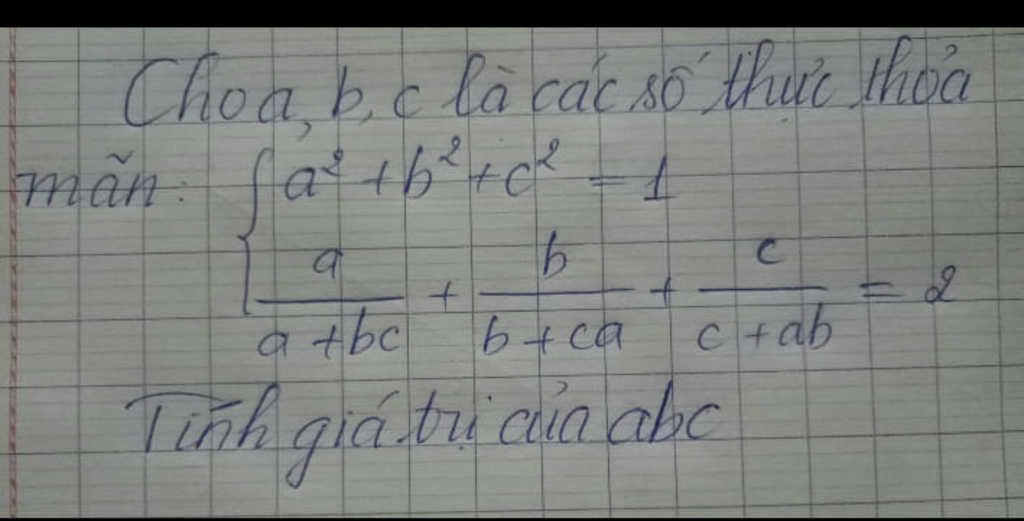 Cho a, b, c là các số thực thỏa
mãn: { a² + b² + c² = 1
a/(a + bc) + b/(b + ca) + c/(c + ab) = 2
Tính giá trị của abc